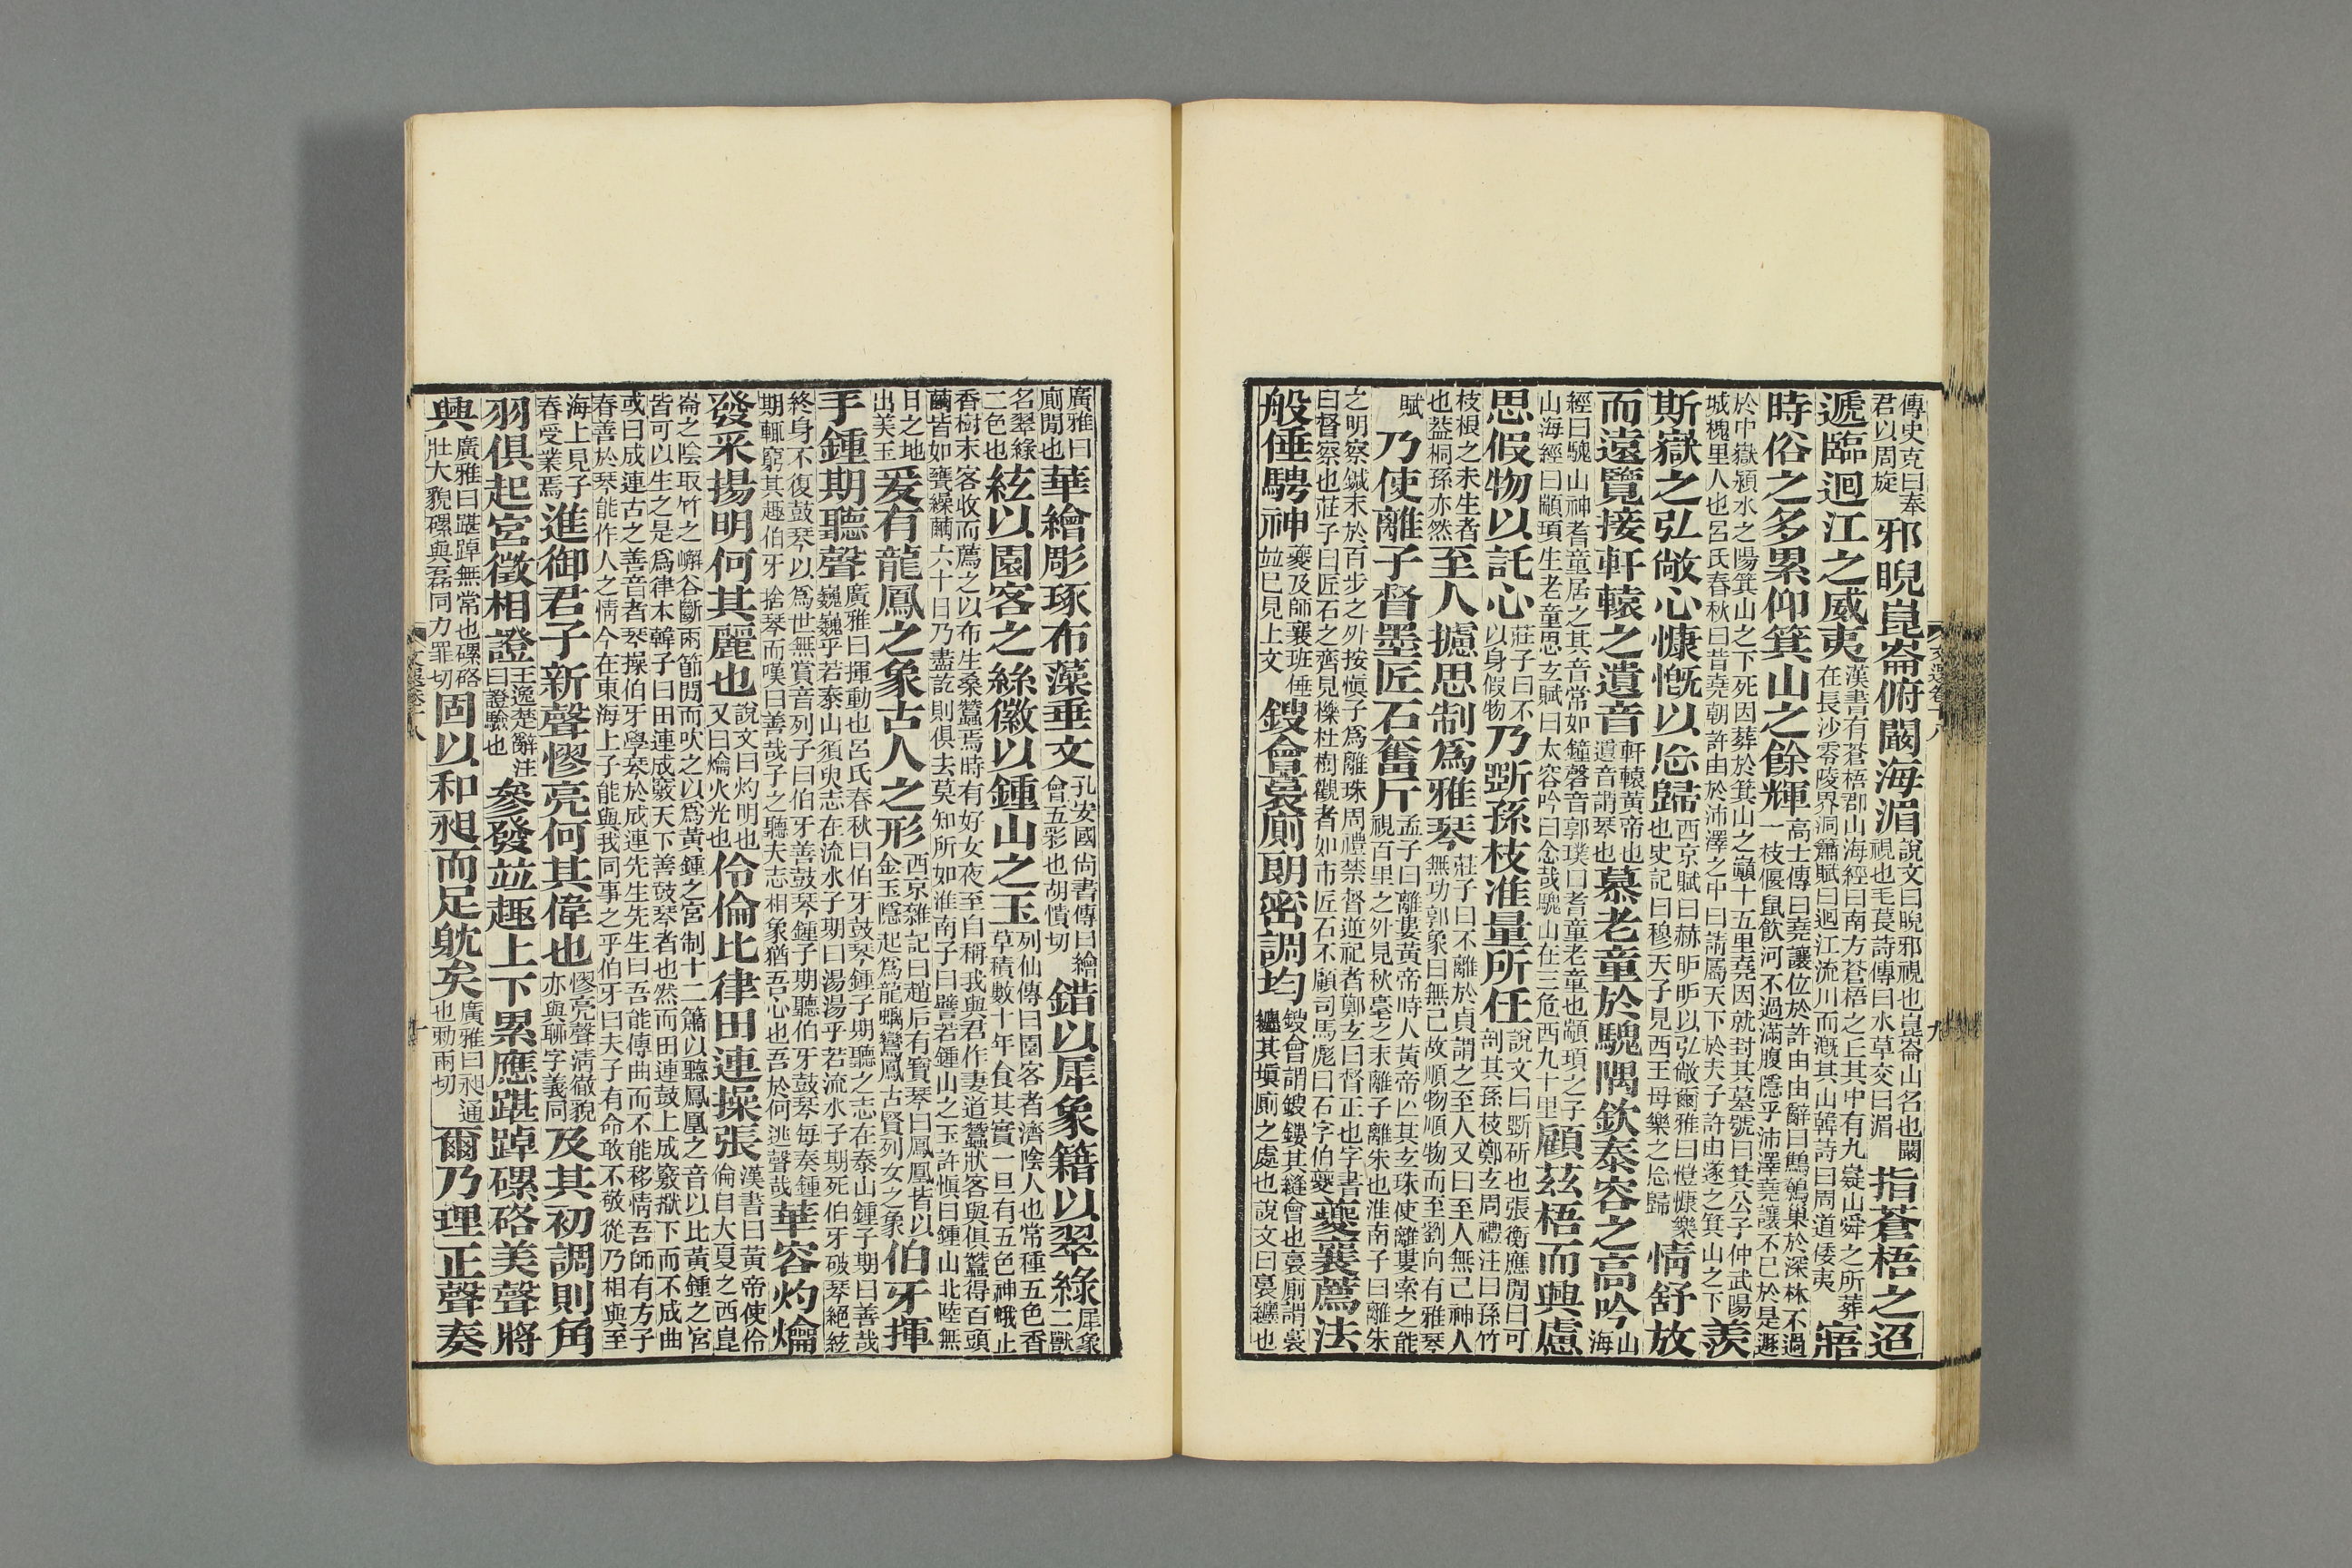 傳史克曰奉君以周旋邪睨崑崙俯闞海湄說文曰睨邪視也崑崙山名也闞視也毛萇詩傳曰水草交曰湄指蒼梧之迢
遞臨迴江之威夷漢書有蒼梧郡山海經曰南方蒼梧之丘其中有九嶷山舜之所葬在長沙零陵界洞簫賦曰迴江流川而溉其山韓詩曰周道倭夷寤
時俗之多累仰箕山之餘輝高士傳曰堯讓位於許由由辭曰鷦鷯巢於深林不過一枝偃鼠飲河不過滿腹隱乎沛澤堯讓不已於是遯
於中嶽潁水之陽箕山之下死因葬於箕山之巔十五里堯因就封其墓號曰箕公子仲武陽城槐里人也呂氏春秋曰昔堯朝許由於沛澤之中曰請屬天下於夫子許由遂之箕山之下羨
斯嶽之弘敞心慷慨以忘歸西京賦曰赫昈昈以弘敞爾雅曰愷慷樂也史記曰穆天子見西王母樂之忘歸情舒放
而遠覽接軒轅之遺音軒轅黃帝也遺音謂琴也慕老童於騩隅欽泰容之高吟山海
經曰騩山神耆童居之其音常如鐘磬音郭璞曰耆童老童也顓頊之子山海經曰顓頊生老童思玄賦曰太容吟曰念哉騩山在三危西九十里顧茲梧而興慮
思假物以託心莊子曰不以身假物乃斲孫枝准量所任說文曰斲斫也張衡應閒曰可剖其孫枝鄭玄周禮注曰孫竹
枝根之未生者也蓋桐孫亦然至人攄思制為雅琴莊子曰不離於貞謂之至人又曰至人無己神人無功郭象曰無己故順物順物而至劉向有雅琴
賦乃使離子督墨匠石奮斤孟子曰離婁黃帝時人黃帝亡其玄珠使離婁索之能視百里之外見秋毫之末離子離朱也淮南子曰離朱
之明察鍼末於百步之外按慎子為離珠周禮禁督逆祀者鄭玄曰督正也字書曰督察也莊子曰匠石之齊見櫟杜樹觀者如市匠石不顧司馬彪曰石字伯夔襄薦法
般倕騁神夔及師襄班倕並已見上文鎪會裛廁朗密調均鎪會謂鎪鏤其縫會也裛廁謂裛纏其填廁之處也說文曰裛纏也
文選卷十八
九
廣雅曰廁閒也華繪彫琢布藻垂文孔安國尚書傳曰繪會五彩也胡憒切錯以犀象籍以翠綠犀象二獸
名翠綠二色也絃以園客之絲徽以鍾山之玉列仙傳曰園客者濟陰人也常種五色香草積數十年食其實一旦有五色神蛾止
香樹末客收而薦之以布生桑蠶焉時有好女夜至自稱我與君作妻道蠶狀客與俱蠶得百頭繭皆如甕繰繭六十日乃盡訖則俱去莫知所如淮南子曰譬若鍾山之玉許慎曰鍾山北陸無
日之地出美玉爰有龍鳳之象古人之形西京雜記曰趙后有寶琴曰鳳凰皆以金玉隱起為龍螭鸞鳳古賢列女之象伯牙揮
手鍾期聽聲廣雅曰揮動也呂氏春秋曰伯牙鼓琴鍾子期聽之志在泰山鍾子期曰善哉巍巍乎若泰山須臾志在流水子期曰湯湯乎若流水子期死伯牙破琴絕絃
終身不復鼓琴以為世無賞音列子曰伯牙善鼓琴鍾子期聽伯牙鼓琴每奏鍾期輒窮其趣伯牙捨琴而嘆曰善哉子之聽夫志相象猶吾心也吾於何逃聲哉華容灼爚
發采揚明何其麗也說文曰灼明也又曰爚火光也伶倫比律田連操張漢書曰黃帝使伶倫自大夏之西崑
崙之陰取竹之嶰谷斷兩節閒而吹之以為黃鍾之宮制十二筩以聽鳳凰之音以比黃鍾之宮皆可以生之是為律本韓子曰田連成竅天下善鼓琴者也然而田連鼓上成竅擫下而不成曲
或曰成連古之善音者琴操伯牙學琴於成連先生先生曰吾能傳曲而不能移情吾師有方子春善於琴能作人之情今在東海上子能與我同事之乎伯牙曰夫子有命敢不敬從乃相與至
海上見子春受業焉進御君子新聲憀亮何其偉也憀亮聲清徹貌亦與聊字義同及其初調則角
羽俱起宮徵相證王逸楚辭注曰證驗也參發並趣上下累應踸踔磥硌美聲將
興廣雅曰踸踔無常也磥硌壯大貌磥與磊同力罪切固以和昶而足躭矣廣雅曰昶通也勅兩切爾乃理正聲奏
文選卷十八
十